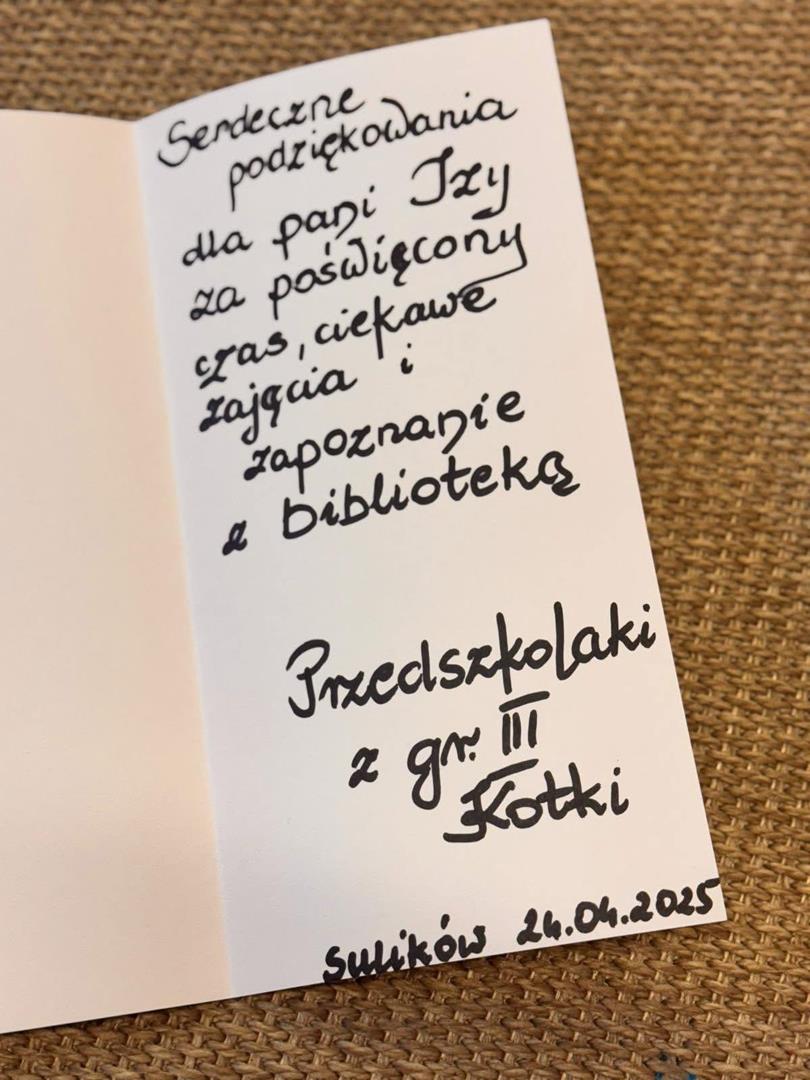 Serdeczne
podziękowania
dla pani Izy
za poświęcony
czas, ciekawe
zajęcia i
zapoznanie
z biblioteką
Przedszkolaki
z gr. III
Kotki
Sulików 24.04.2025